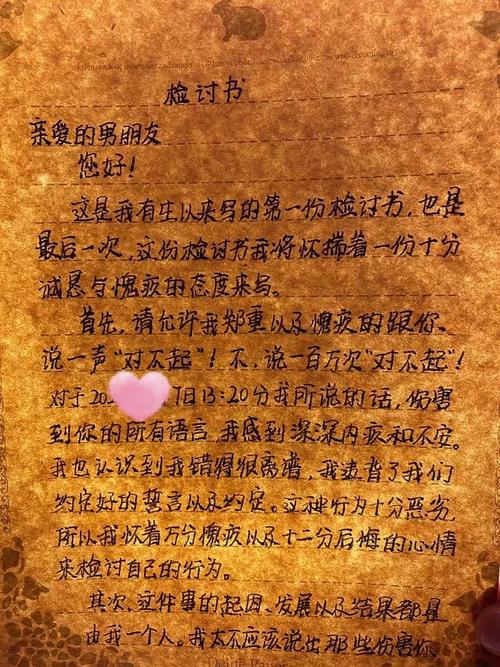 检讨书
亲爱的男朋友
您好!
这是我有生以来写的第一份检讨书,也是
最后一次,这份检讨书我将怀揣着一份十分
诚恳与愧疚的态度来写。
首先,请允许我郑重以及愧疚的跟你
说一声“对不起”!不,说一百万次“对不起”!
对于20 1日13:20分我所说的话,伤害
到你的所有语言,我感到深深内疚和不安。
我也认识到我错得很离谱,我违背了我们
约定好的誓言以及约定。这种行为十分恶劣,
所以我怀着万分愧疚以及十二分后悔的心情
来检讨自己的行为。
其次,这件事的起因、发展以及结果都是
由我一个人。我太不应该说出那些伤害你